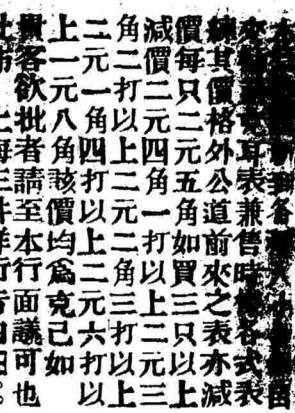 耳表兼售時各式表
鍊其價格外公道前來之表亦減
價每只二元五角如買三只以上
減價二元四角一打以上二元三
角二打以上二元二角三打以上
二元一角四打以上二元六打以
上一元八角該價均爲克己如
貴客欲批者請至本行面議可也
此佈 上海三井洋行